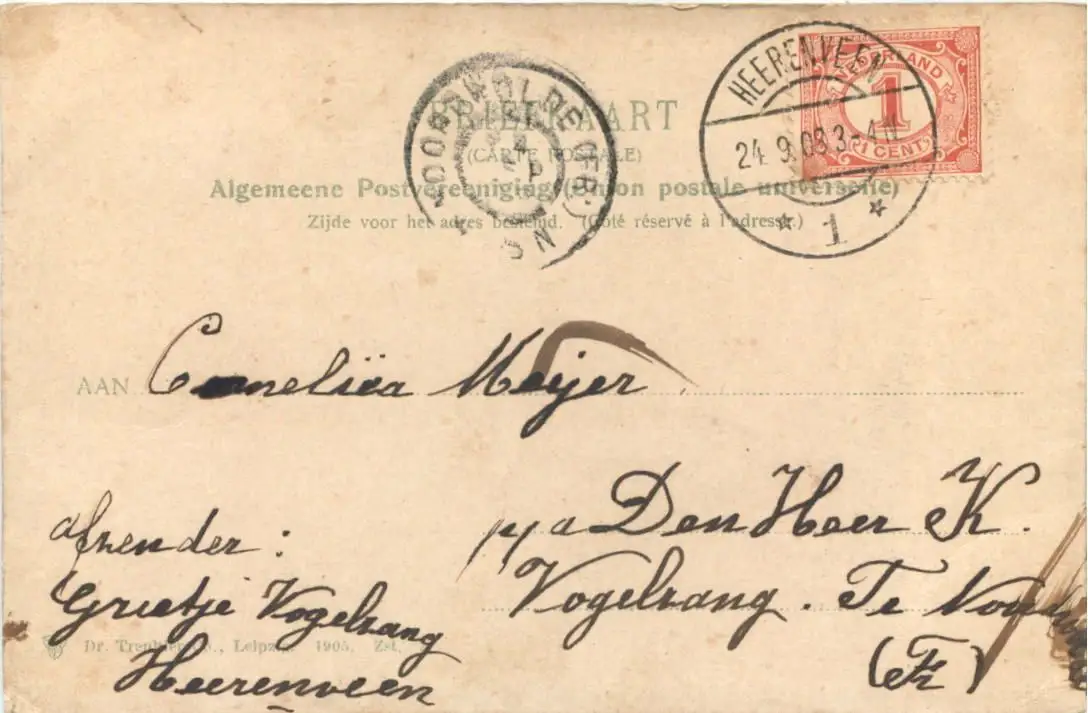 BRIEFKAART
(CARTE POSTALE)
Algemeene Postvereeniging (Union postale universelle)
Zijde voor het adres bestemd. (Côté réservé à l'adresse.)
NOORDWOLDE (FR:)
HEERENVEEN
24. 9. 08. 3-4 N
1
NEDERLAND
1
1 CENT
AAN Corneliëa Meijer
p/a Den Heer K.
Vogelzang. Te
(Fr)
afzender:
Grietje Vogelzang
Heerenveen
Dr. Trenkler Co., Leipzig. 1905. Zst.